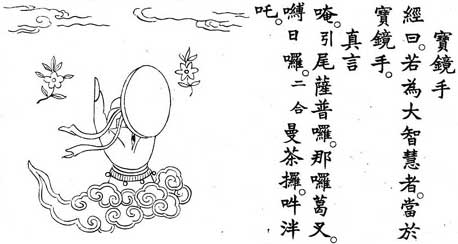 寶鏡手
經曰。若為大智慧者。當於
寶鏡手。
真言
唵。引尾薩普囉。那囉葛叉。
縛日囉。二合曼茶攞。吽泮
吒。